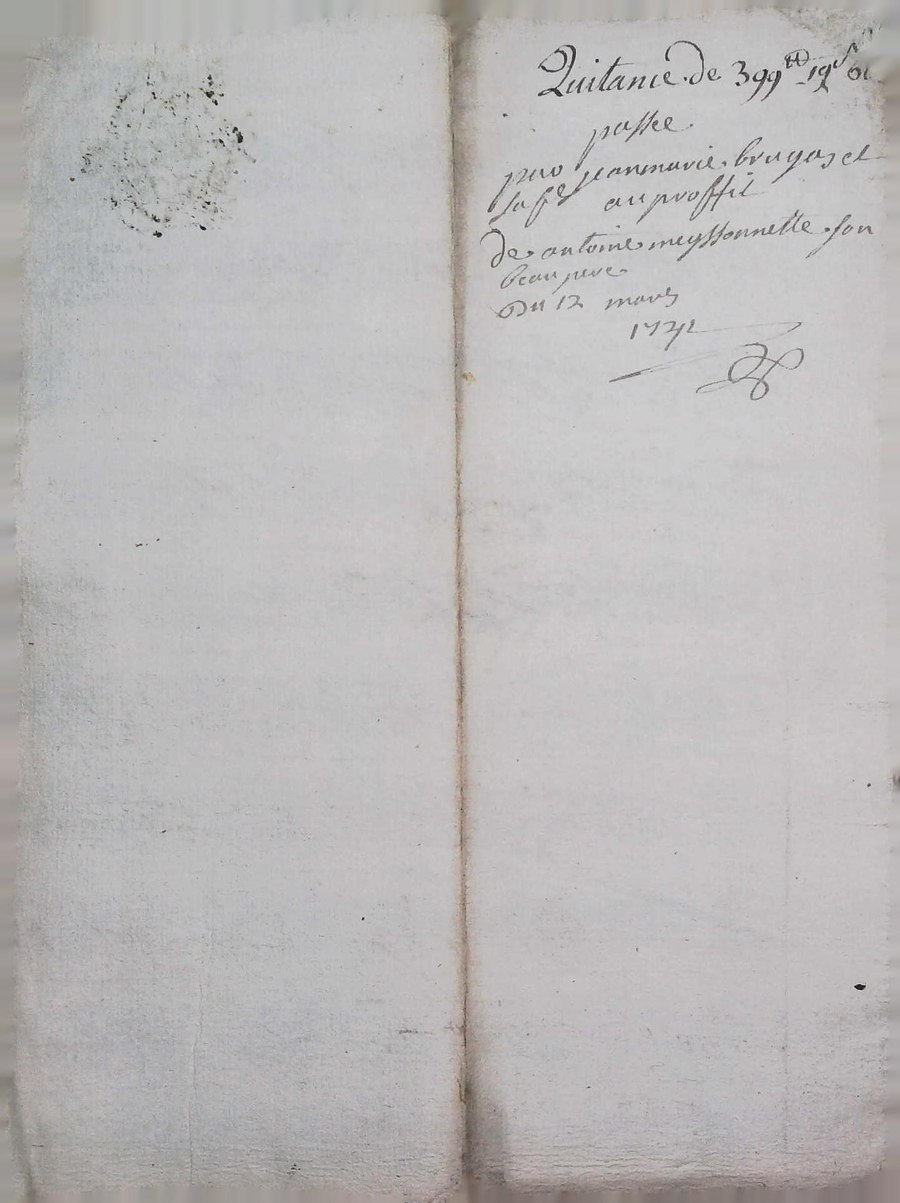 Quitance de 399 ₶ 19 s
passée
par jean marie brugas et
sa fe au proffit
de antoine meyssonnette son
beau pere
Du 12 mars